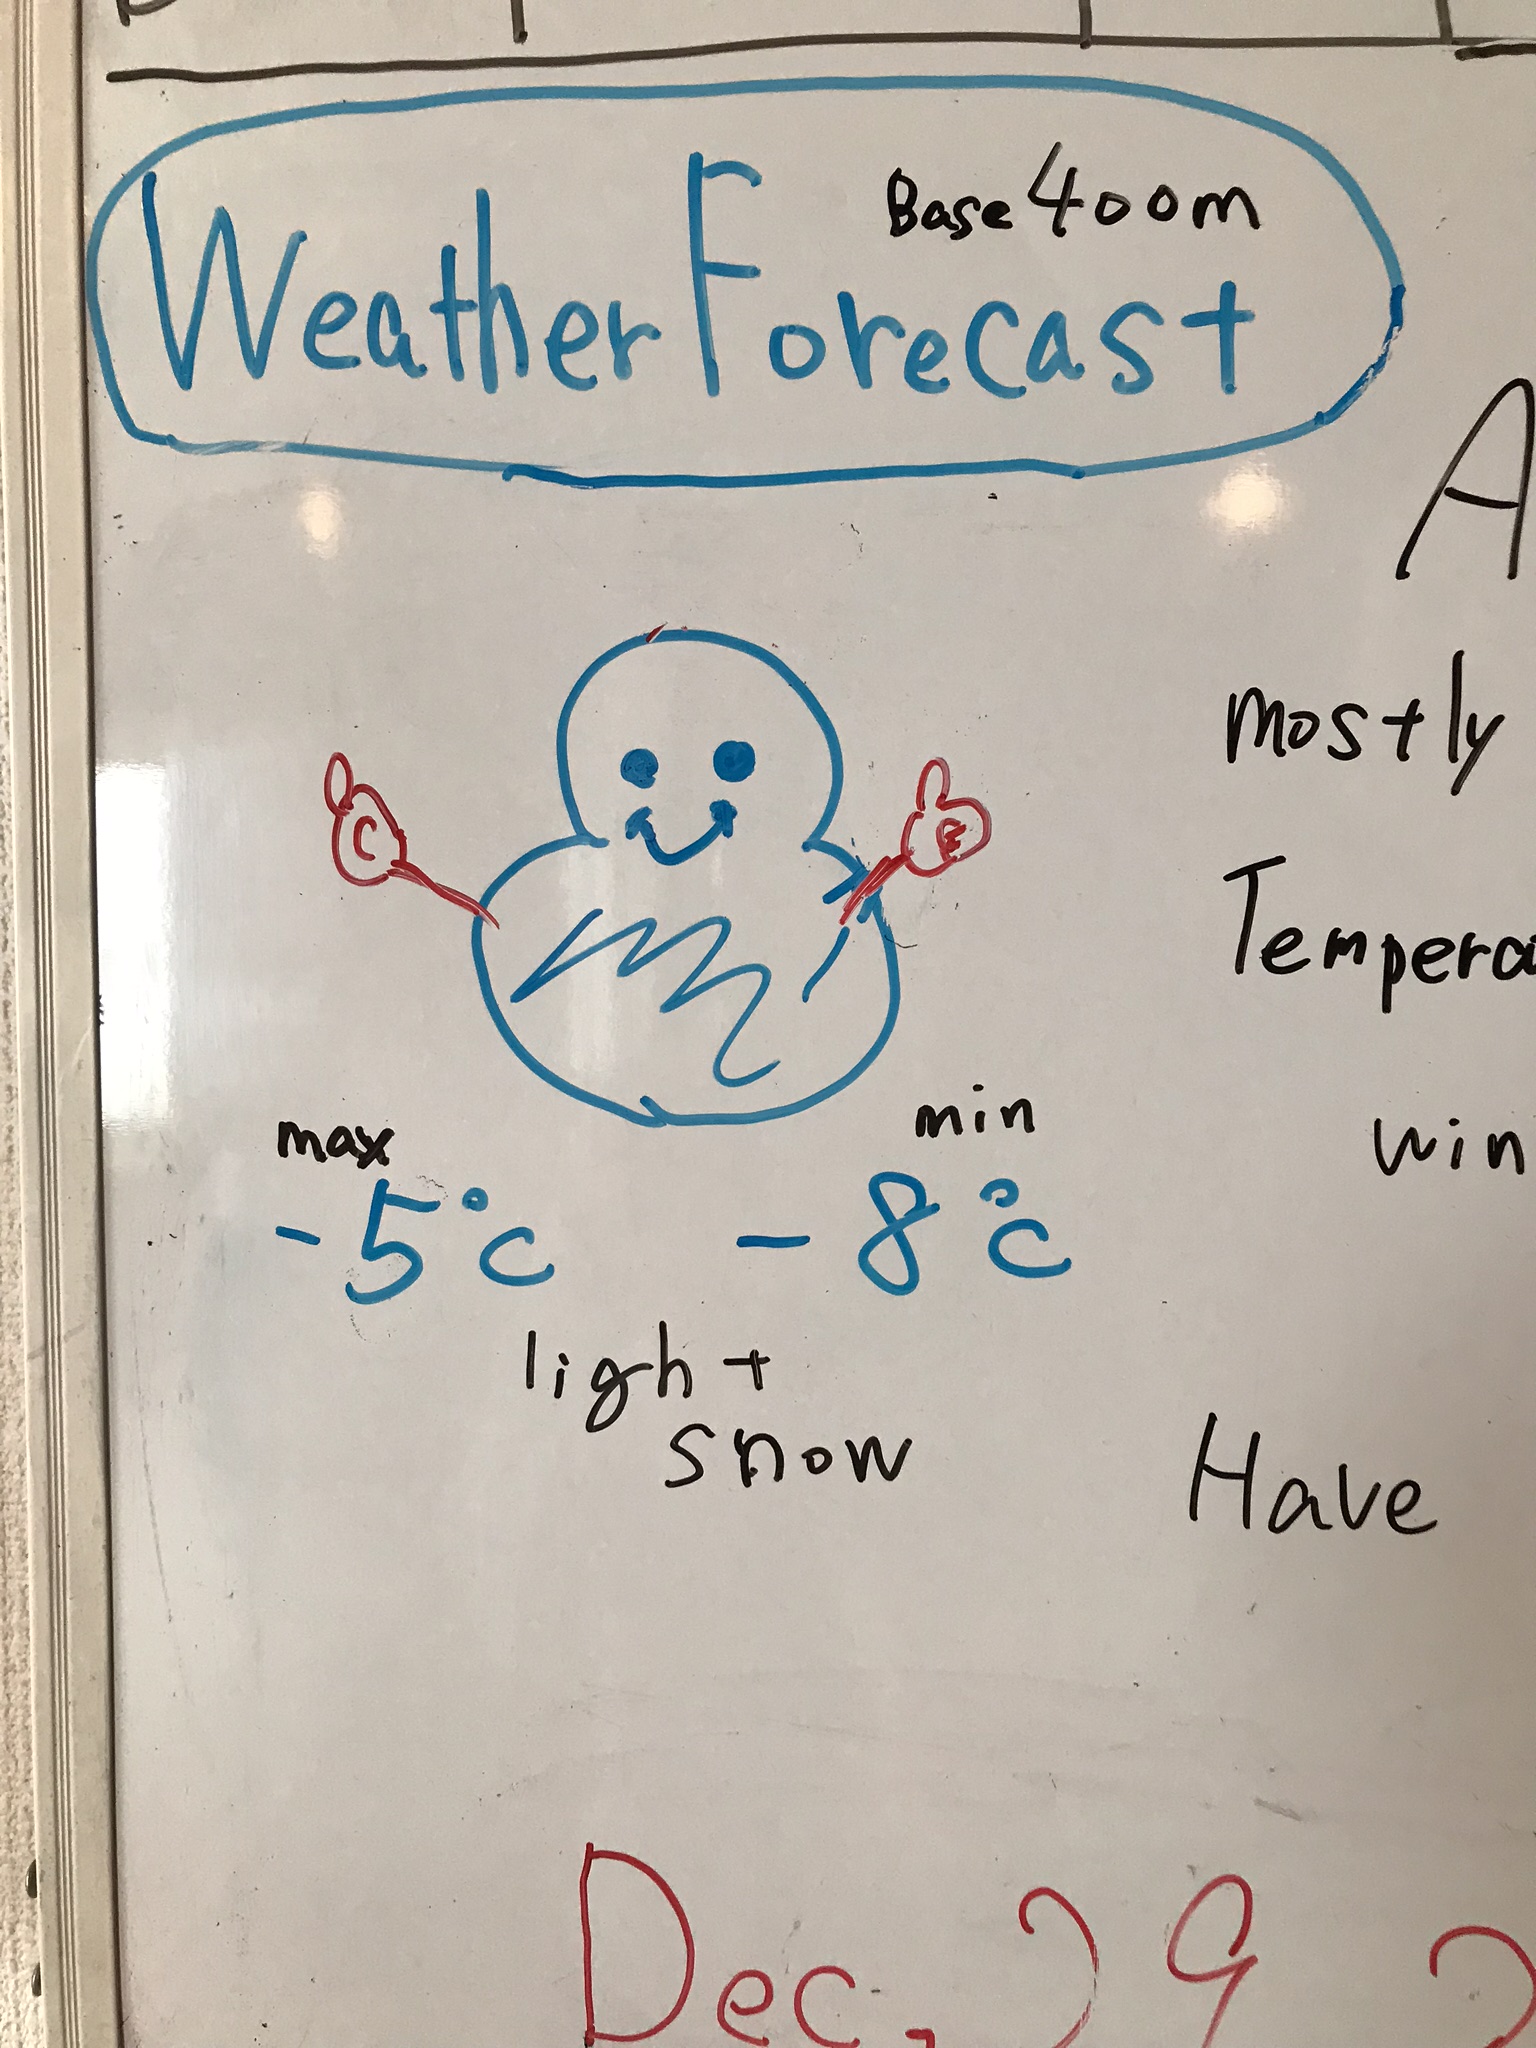 Base 400m
Weather Forecast
A
mostly
C
E
Tempera
win
max
min
-5°C
-8°C
light
snow
Have
Dec. 29 2